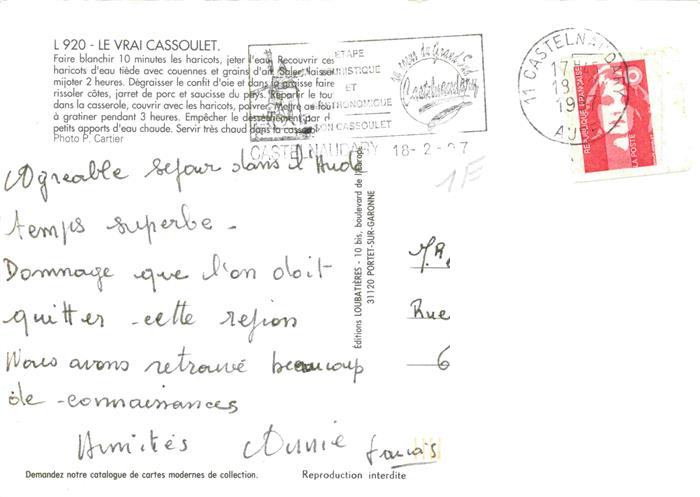 L 920 - LE VRAI CASSOULET.
Faire blanchir 10 minutes les haricots, jeter l'eau. Recouvrir ces
haricots d'eau tiède avec couennes et grains d'ail. Saler, laisser
mijoter 2 heures. Dégraisser le confit d'oie et dans la graisse faire
rissoler côtes, jarret de porc et saucisse du pays. Répartir le tout
dans la casserole, couvrir avec les haricots, poivrer. Mettre au four
à gratiner pendant 3 heures. Empêcher le dessèchement par de
petits apports d'eau chaude. Servir très chaud dans la casserole.
Photo P. Cartier
ETAPE
TOURISTIQUE
ET
GASTRONOMIQUE
SON CASSOULET
CASTELNAUDARY 18-2-97
Castelnaudary
11 CASTELNAUDARY
17H
19
REPUBLIQUE FRANÇAISE
LA POSTE
1F
Agreable sejour dans l'Aude
temps superbe -
Dommage que l'on doit
quitter cette region
Nous avons retrouvé beaucoup
de connaissances
Amitiés Annie Francis
Editions LOUBATIÈRES - 10 bis, boulevard de l'Europe
31120 PORTET-SUR-GARONNE
Rue
6
Demandez notre catalogue de cartes modernes de collection. Reproduction interdite